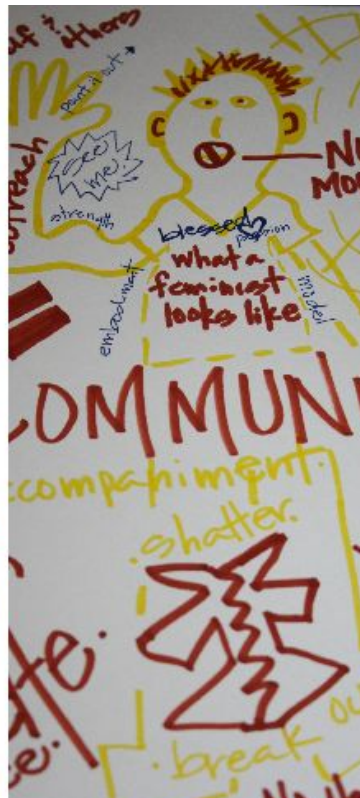 & others
point it out →
see
me!
outreach
strength
blessed
passion
what a
feminist
looks like
embodiment
model
COMMUN
companiment.
.shatter.
.break ou